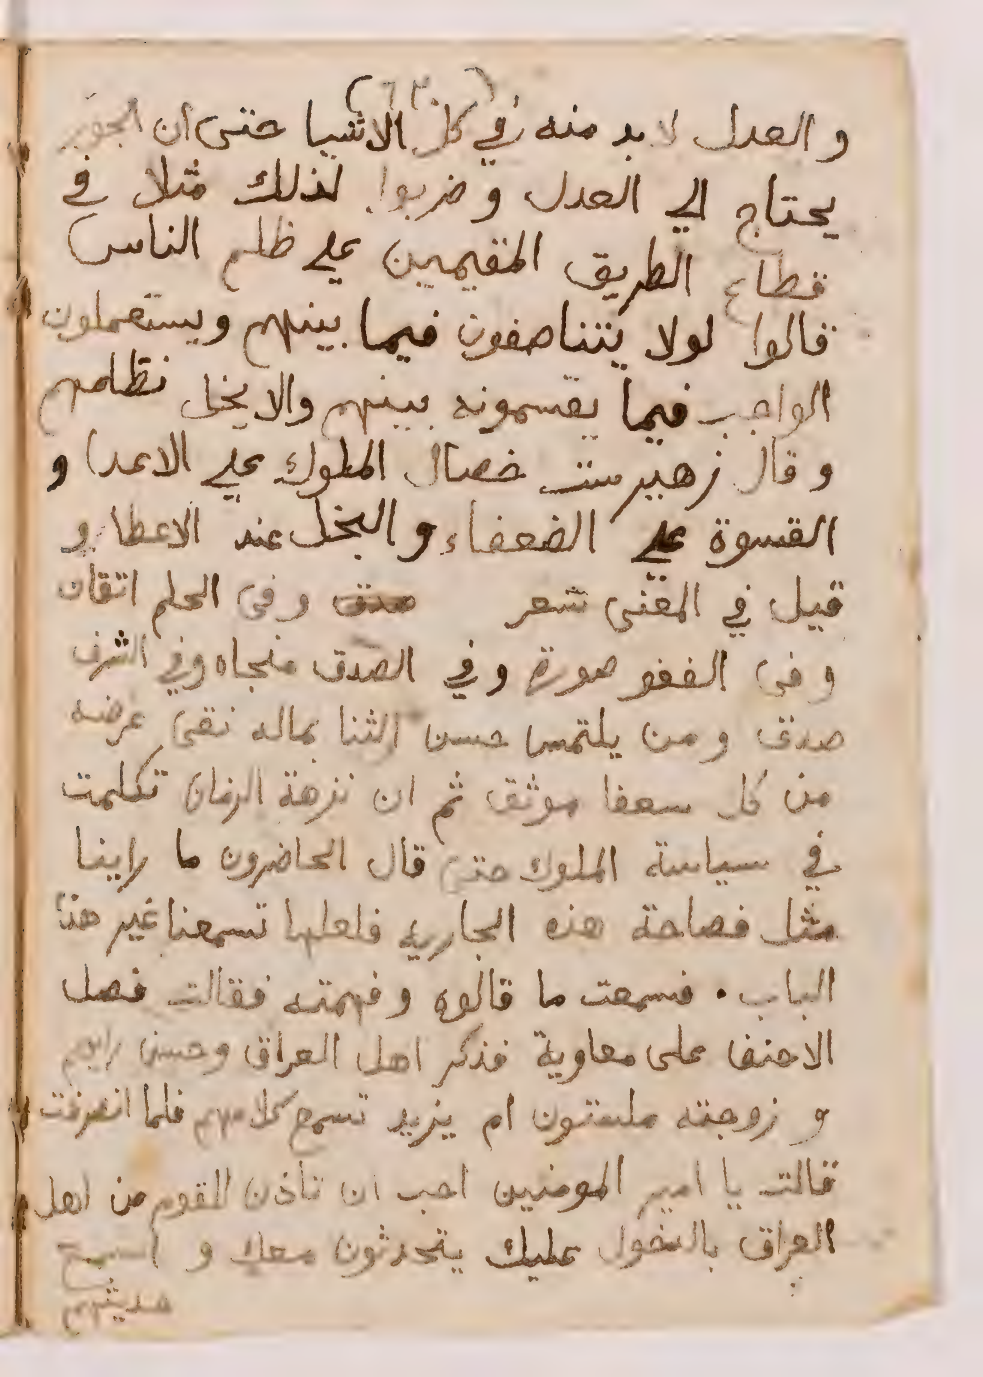 (٦٣)
و العدل لا بد منه في كل الاشيا حتى ان الجور
يحتاج الي العدل و ضربوا لذلك مثلا في
قطاع الطريق المقيمين علي ظلم الناس
قالوا لولا يتناصفون فيما بينهم ويستعملون
الواجب فيما يقسمونه بينهم والا يختل نظامهم
و قال زهير ست خصال الملوك علي الاعدا و
القسوة علي الضعفاء و البخل عند الاعطا و
قيل في المغني شعر وفى الحلم اتقان
و فى العفو صورة و في الصدق منجاه وفي الشرف
صدق و من يلتمس حسن الثنا بماله نقى عرضه
من كل سعفا موثق ثم ان نزهة الزمان تكلمت
في سياسة الملوك حتى قال الحاضرون ما راينا
مثل فصاحة هذه الجاريه فلعلها تسمعنا غير هذا
الباب . فسمعت ما قالوه و فهمته فقالت فصل
الاحنف على معاوية فذكر اهل العراق وحسن رايهم
و زوجته ملستون ام يزيد تسمع كلامهم فلما انصرفت
قالت يا امير المومنين احب ان تاذن للقوم من اهل
العراق بالدخول عليك يتحدثون معك و اسمع
حديثهم